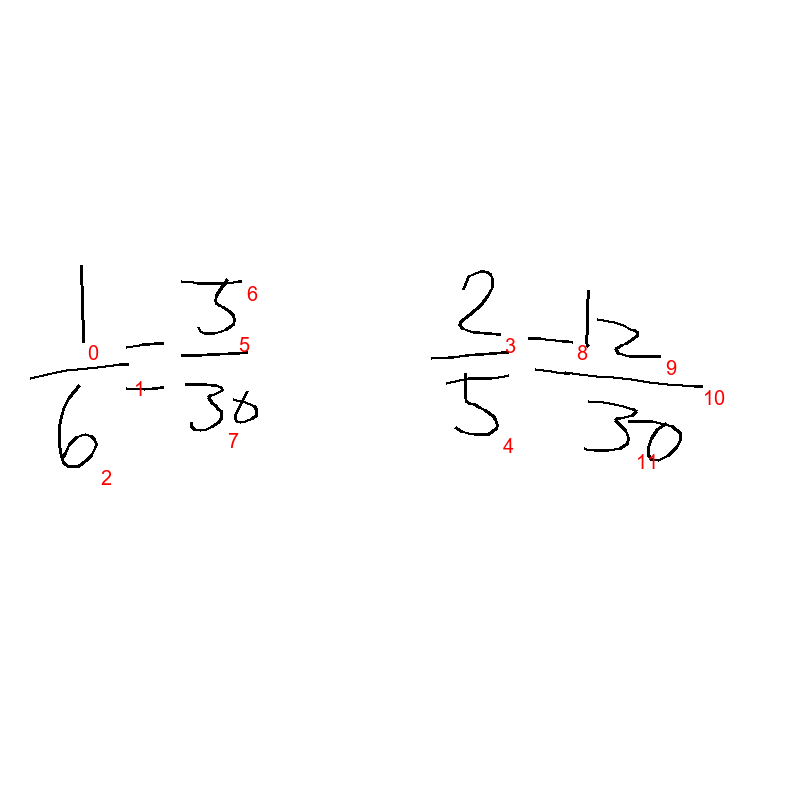 1/6 = 5/30
2/5 = 12/30
0
1
2
3
4
5
6
7
8
9
10
11